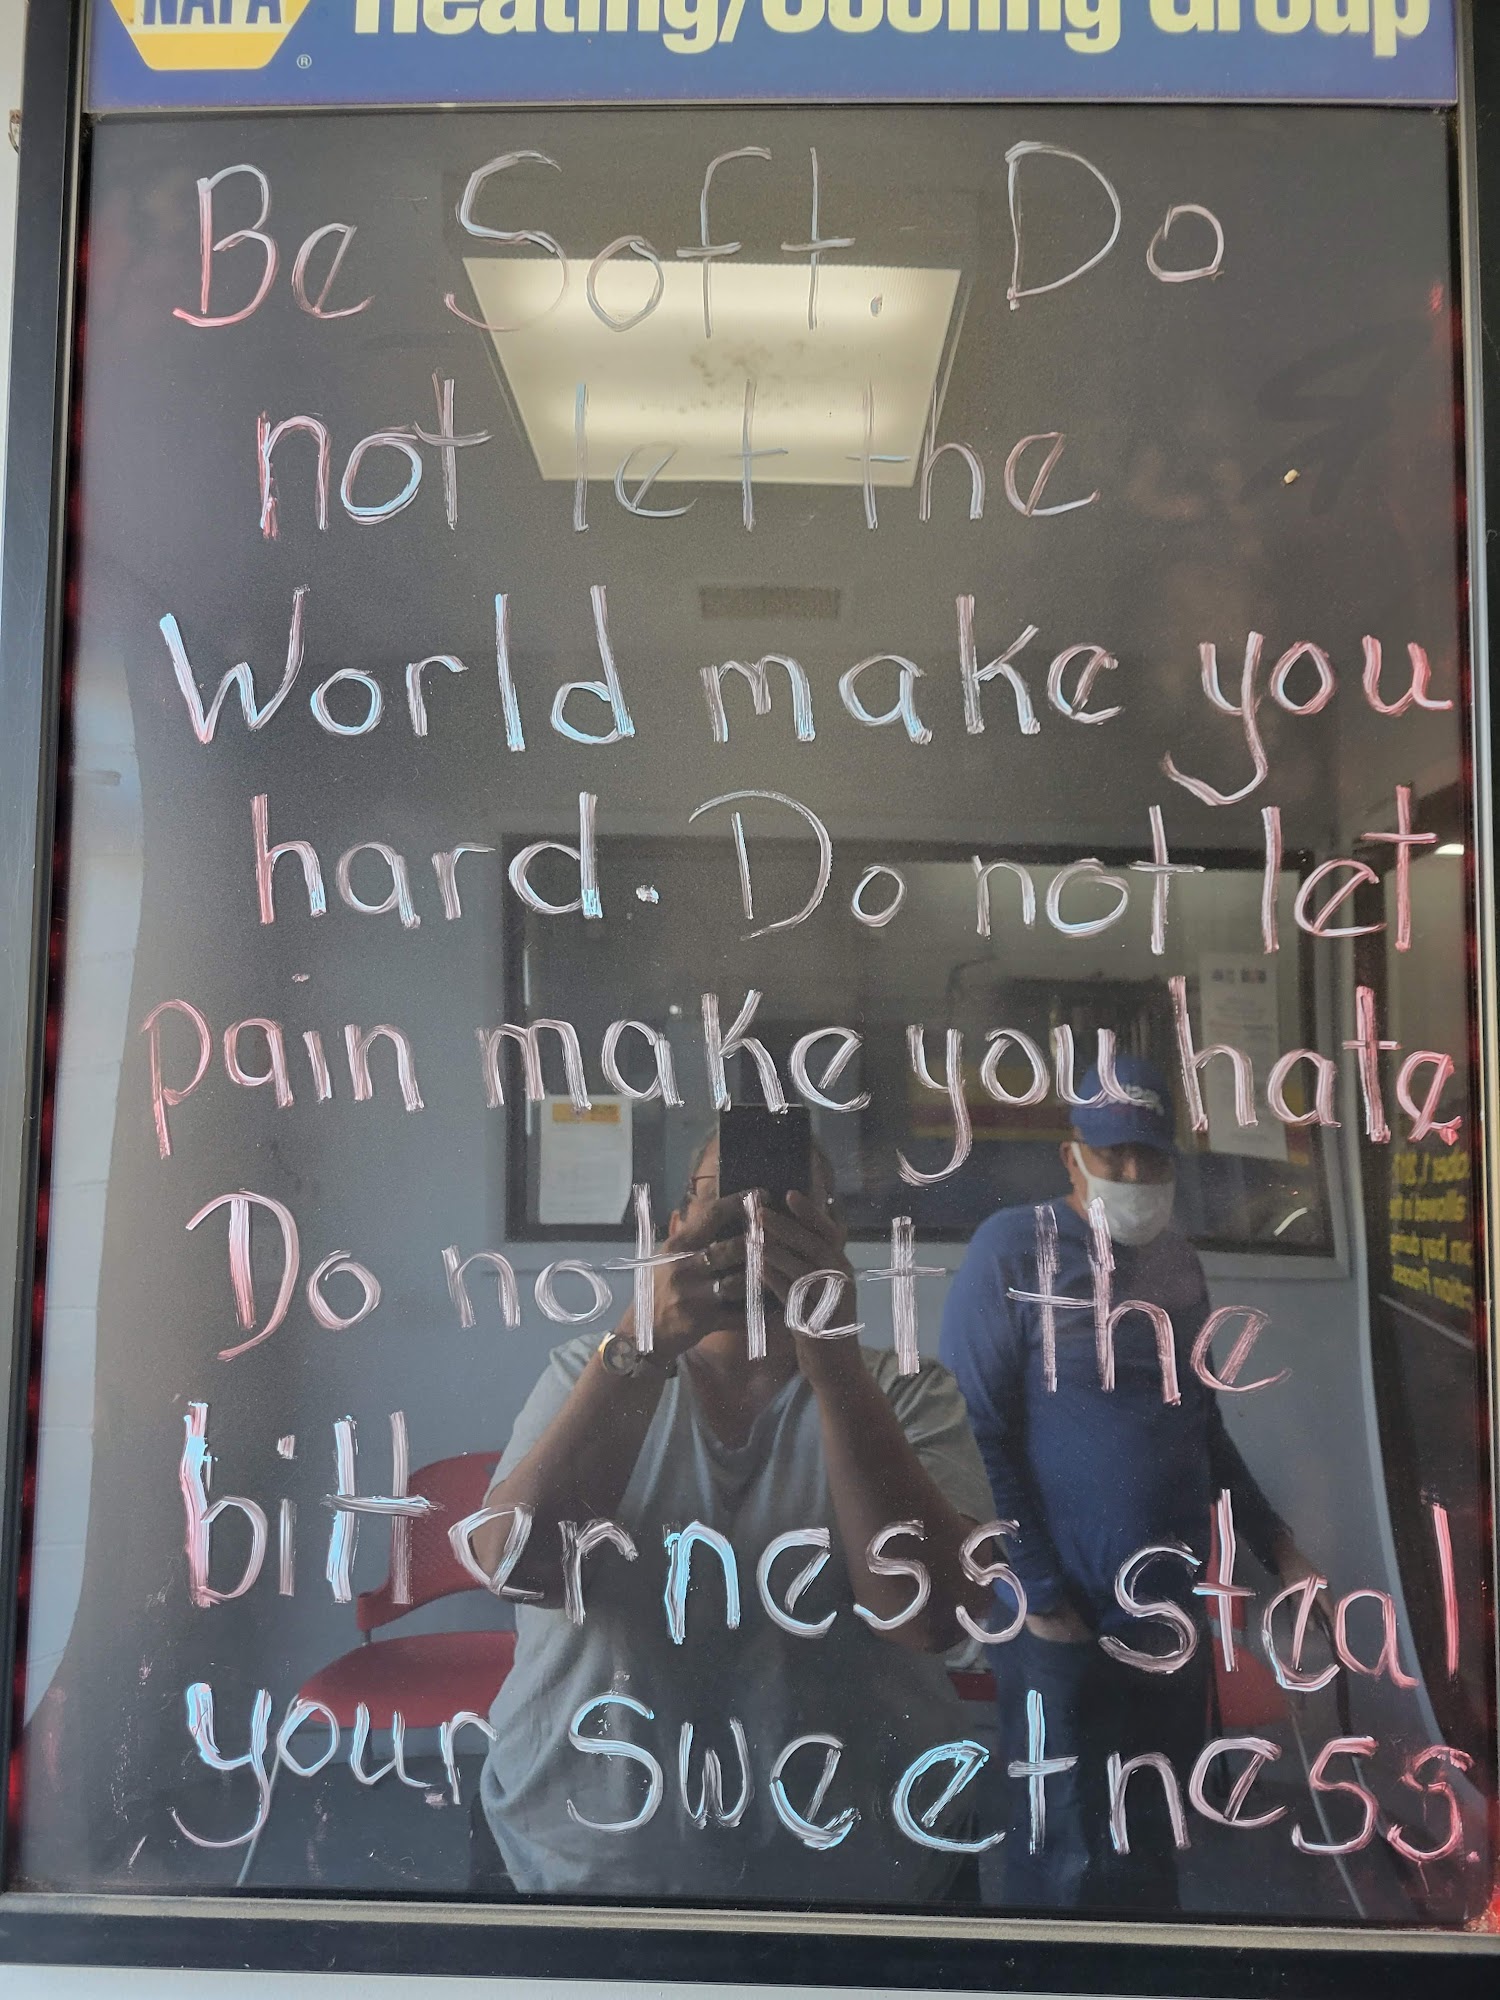 NAPA Heating/Cooling Group
®
Be Soft. Do
not let the
World make you
hard. Do not let
pain make you hate.
Do not let the
bitterness steal
your Sweetness.